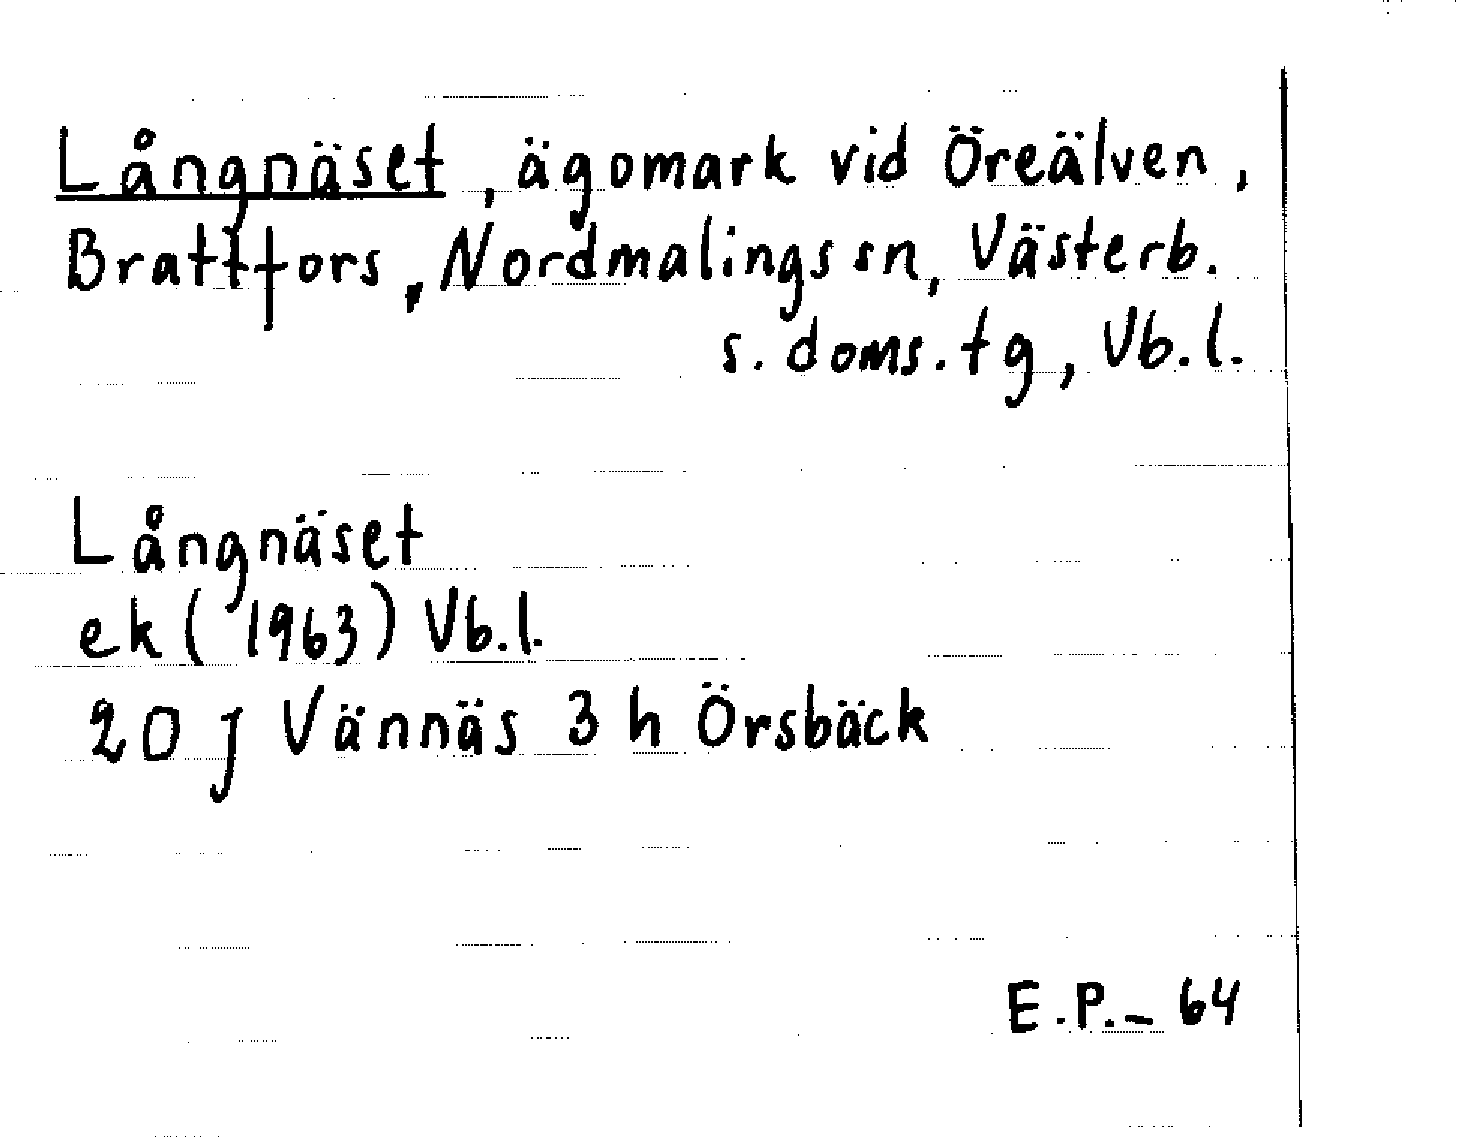 Långnäset, ägomark vid Öreälven,
Brattfors, Nordmalings sn, Västerb.
s. doms. tg, Vb. l.
Långnäset
ek (1963) Vb. l.
20 J Vännäs 3 h Örsbäck
E.P. - 64